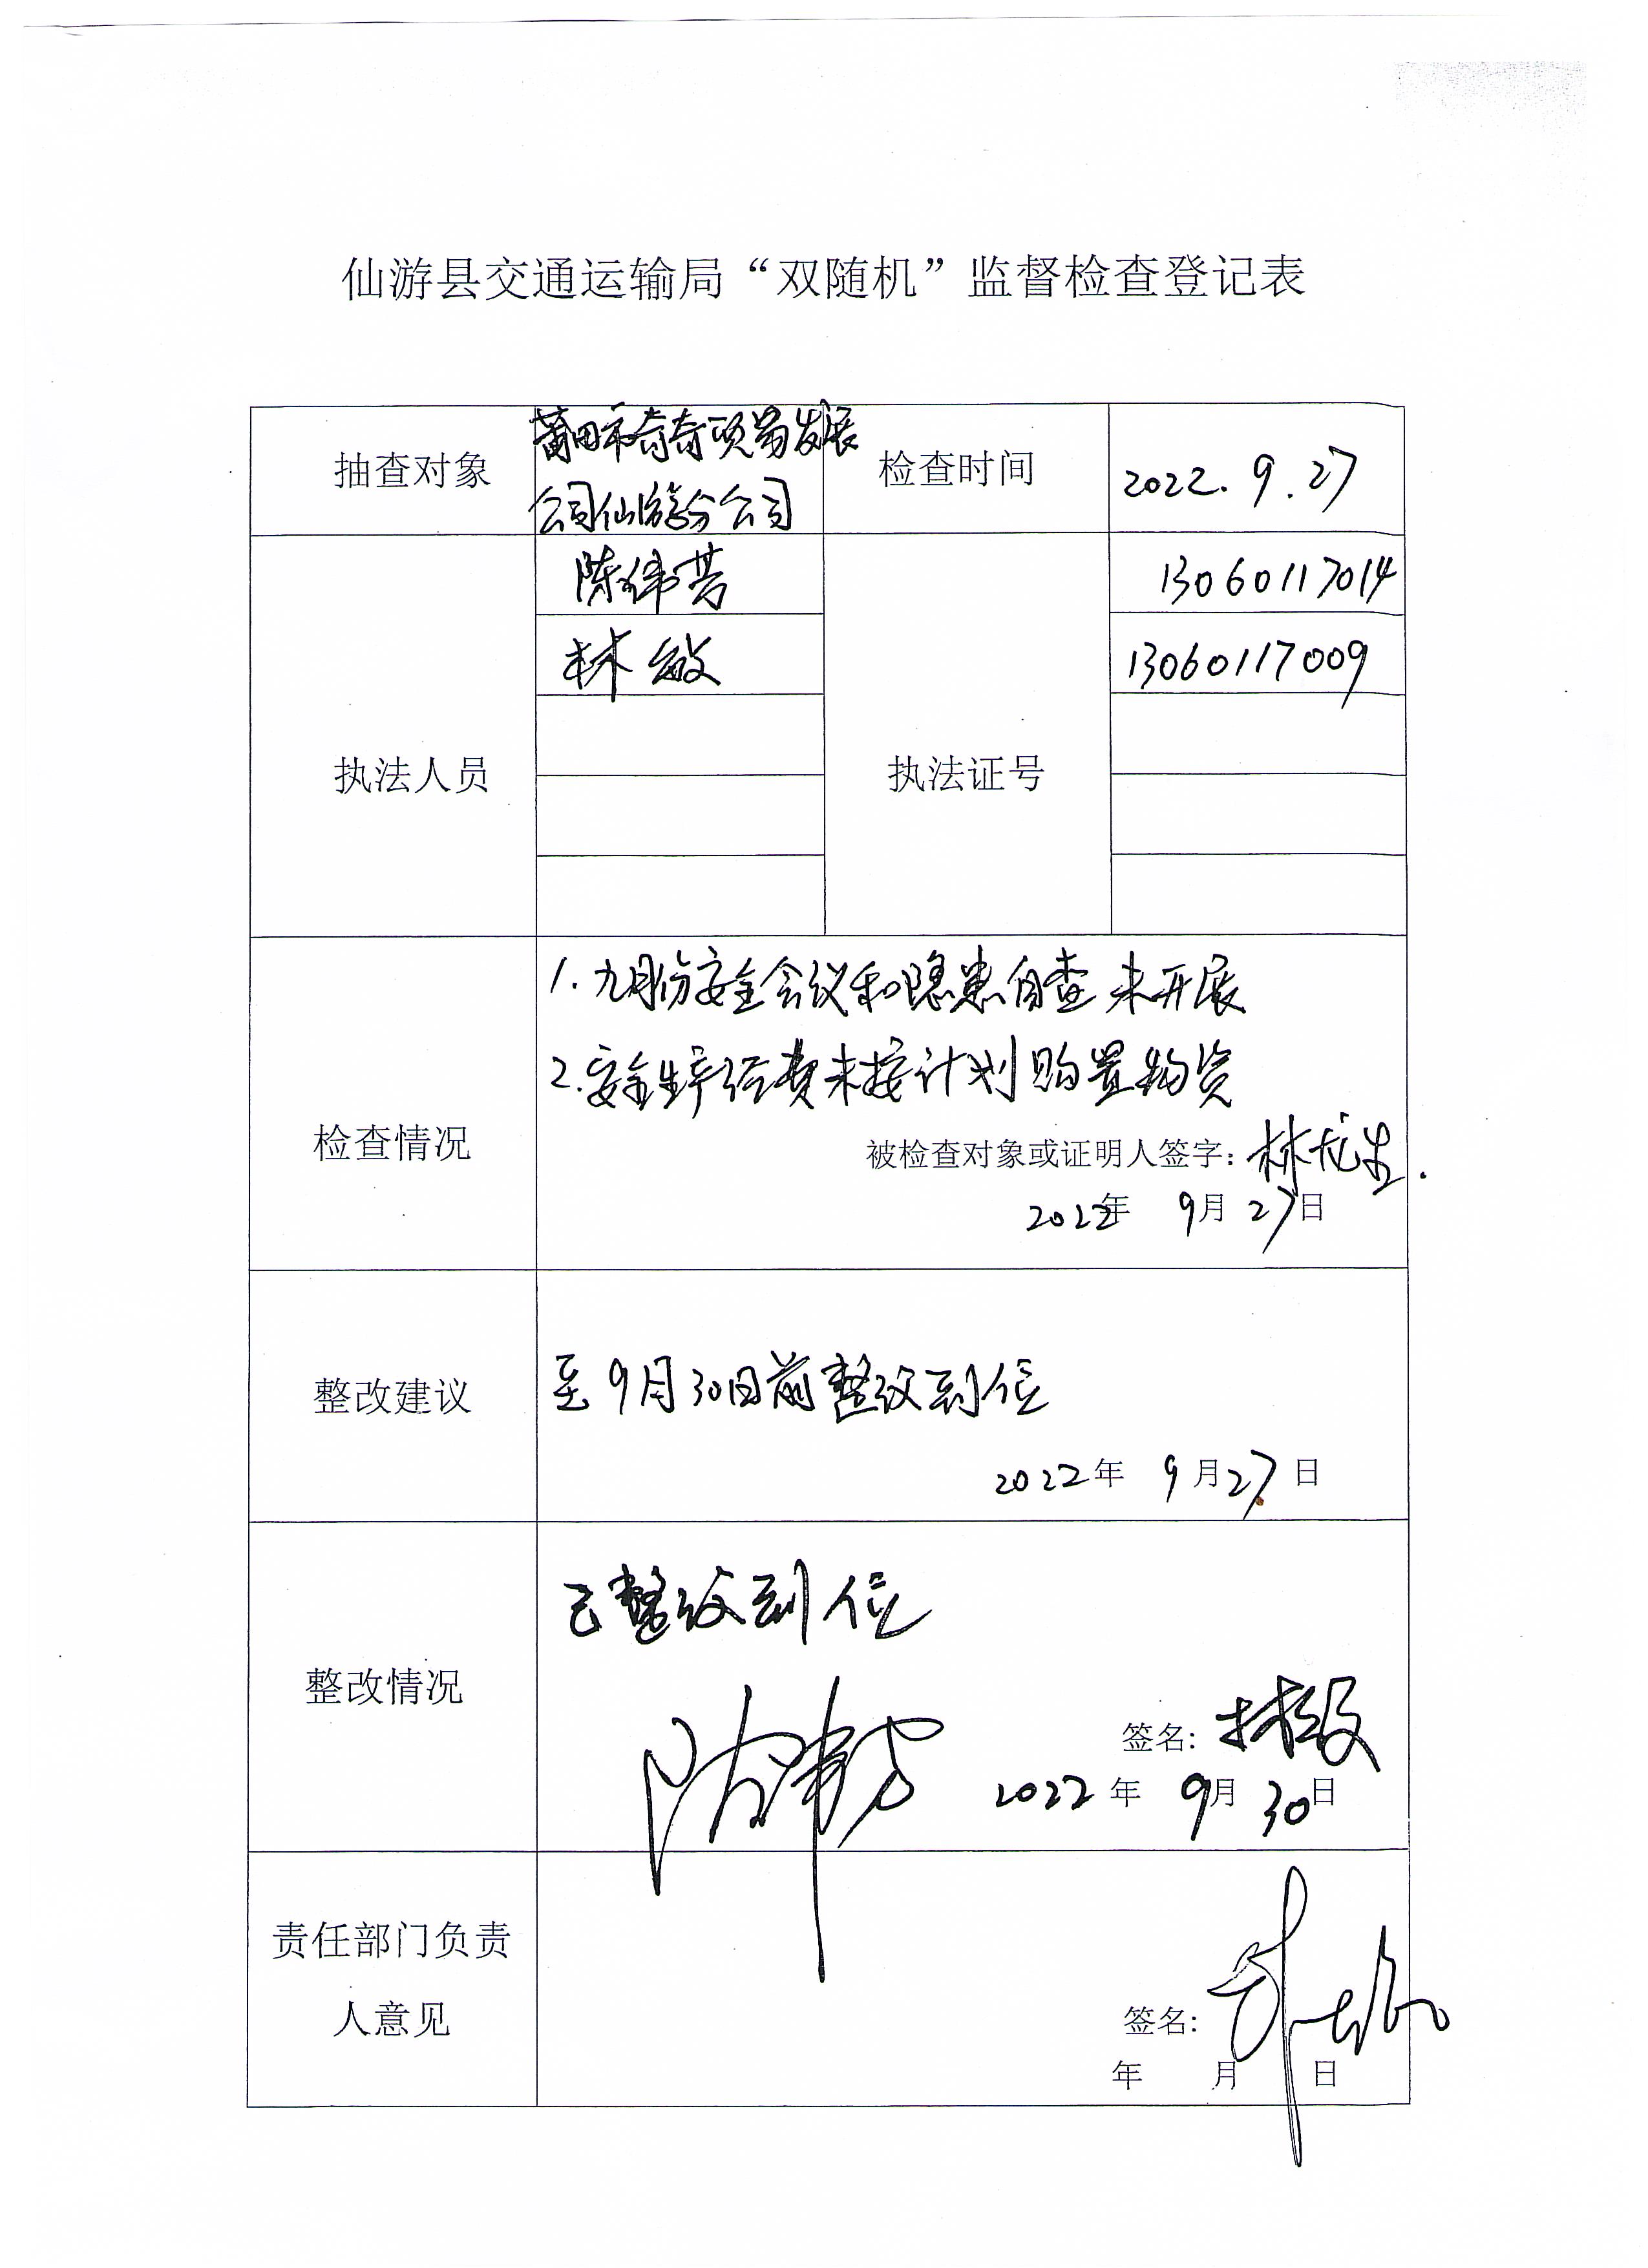 仙游县交通运输局“双随机”监督检查登记表
抽查对象
莆田市奇奇贸易发展
公司仙游分公司
检查时间
2022.9.27
执法人员
陈伟芳
林敏
执法证号
13060117014
13060117009
检查情况
1.九月份安全会议和隐患自查未开展
2.安全生产经费未按计划购置物资
被检查对象或证明人签字：林
2022年 9月27日
整改建议
至9月30日前整改到位
2022年 9月27日
整改情况
已整改到位
陈伟芳
签名：林敏
2022年 9月30日
责任部门负责
人意见
签名：
年 月 日